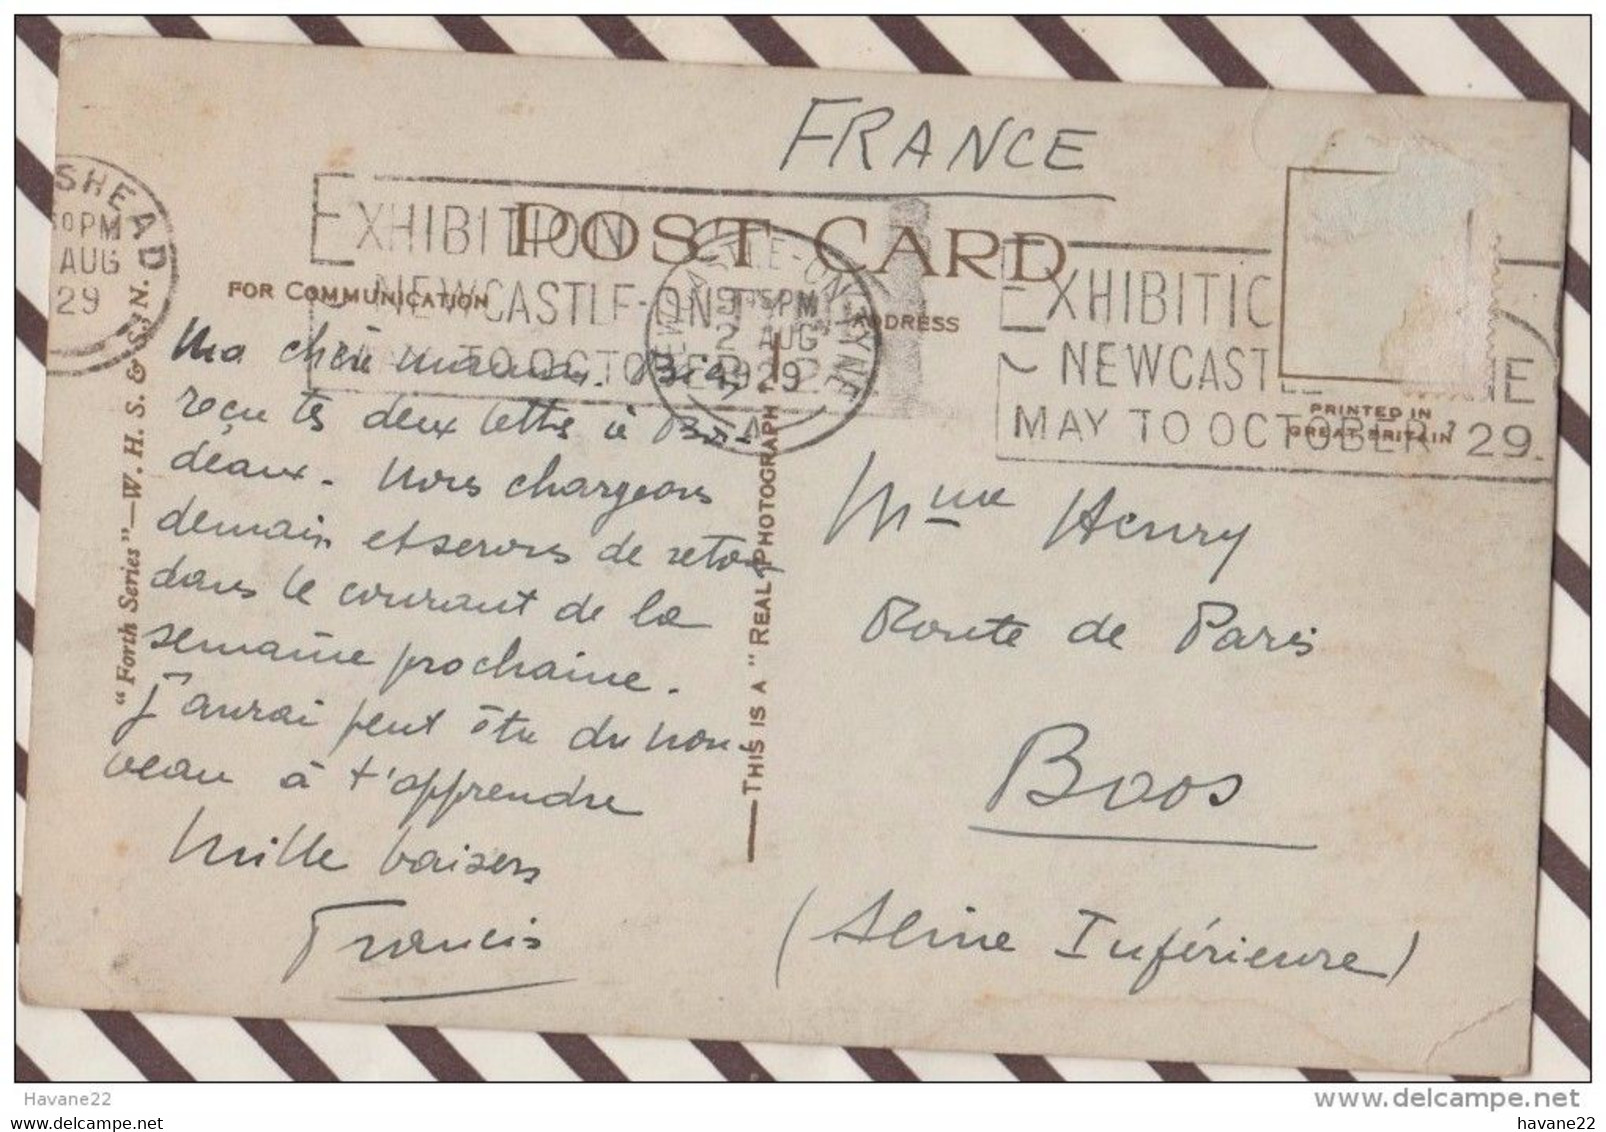 FRANCE
POST CARD
FOR COMMUNICATION
ADDRESS
SHEAD
PM
AUG
29
EXHIBITION
NEWCASTLE-ON-TYNE
TO OCTOBER
NEWCASTLE-ON-TYNE
PM
2 AUG
1929
EXHIBITIO
NEWCAST NE
MAY TO OCTOBER '29.
PRINTED IN
GREAT BRITAIN
"Forth Series"—W. H. S. & S. N.
THIS IS A "REAL PHOTOGRAPH
Ma chère maman. Bien
reçu tes deux lettres à Bor-
deaux. Nous chargeons
demain et serons de retour
dans le courant de la
semaine prochaine.
J'aurai peut être du nou-
veau à t'apprendre
Mille baisers
Francis
Mme Henry
Route de Paris
Boos
(Seine Inférieure)
Havane22
www.delcampe.net
havane22